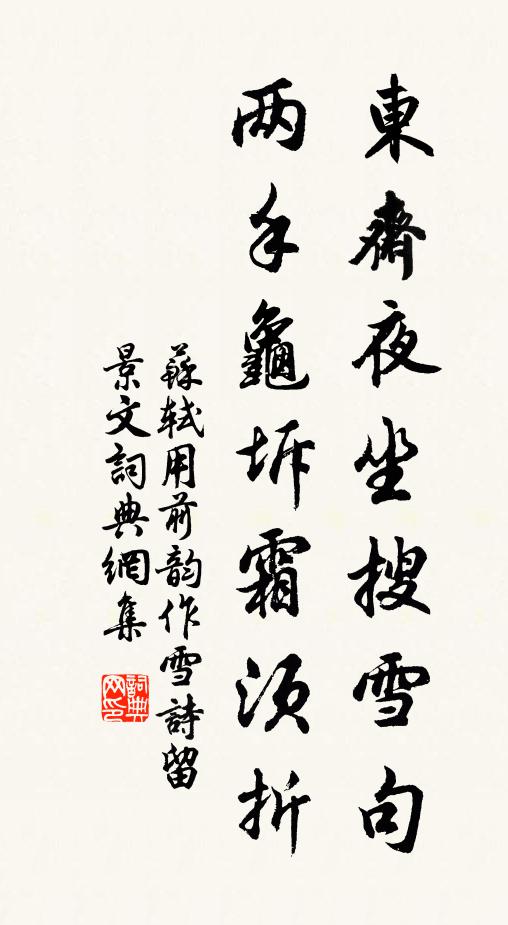 東齋夜坐搜雪句
两手龜坼霜须折
蘇軾用前韵作雪詩留
景文詞典網集
詞典网印